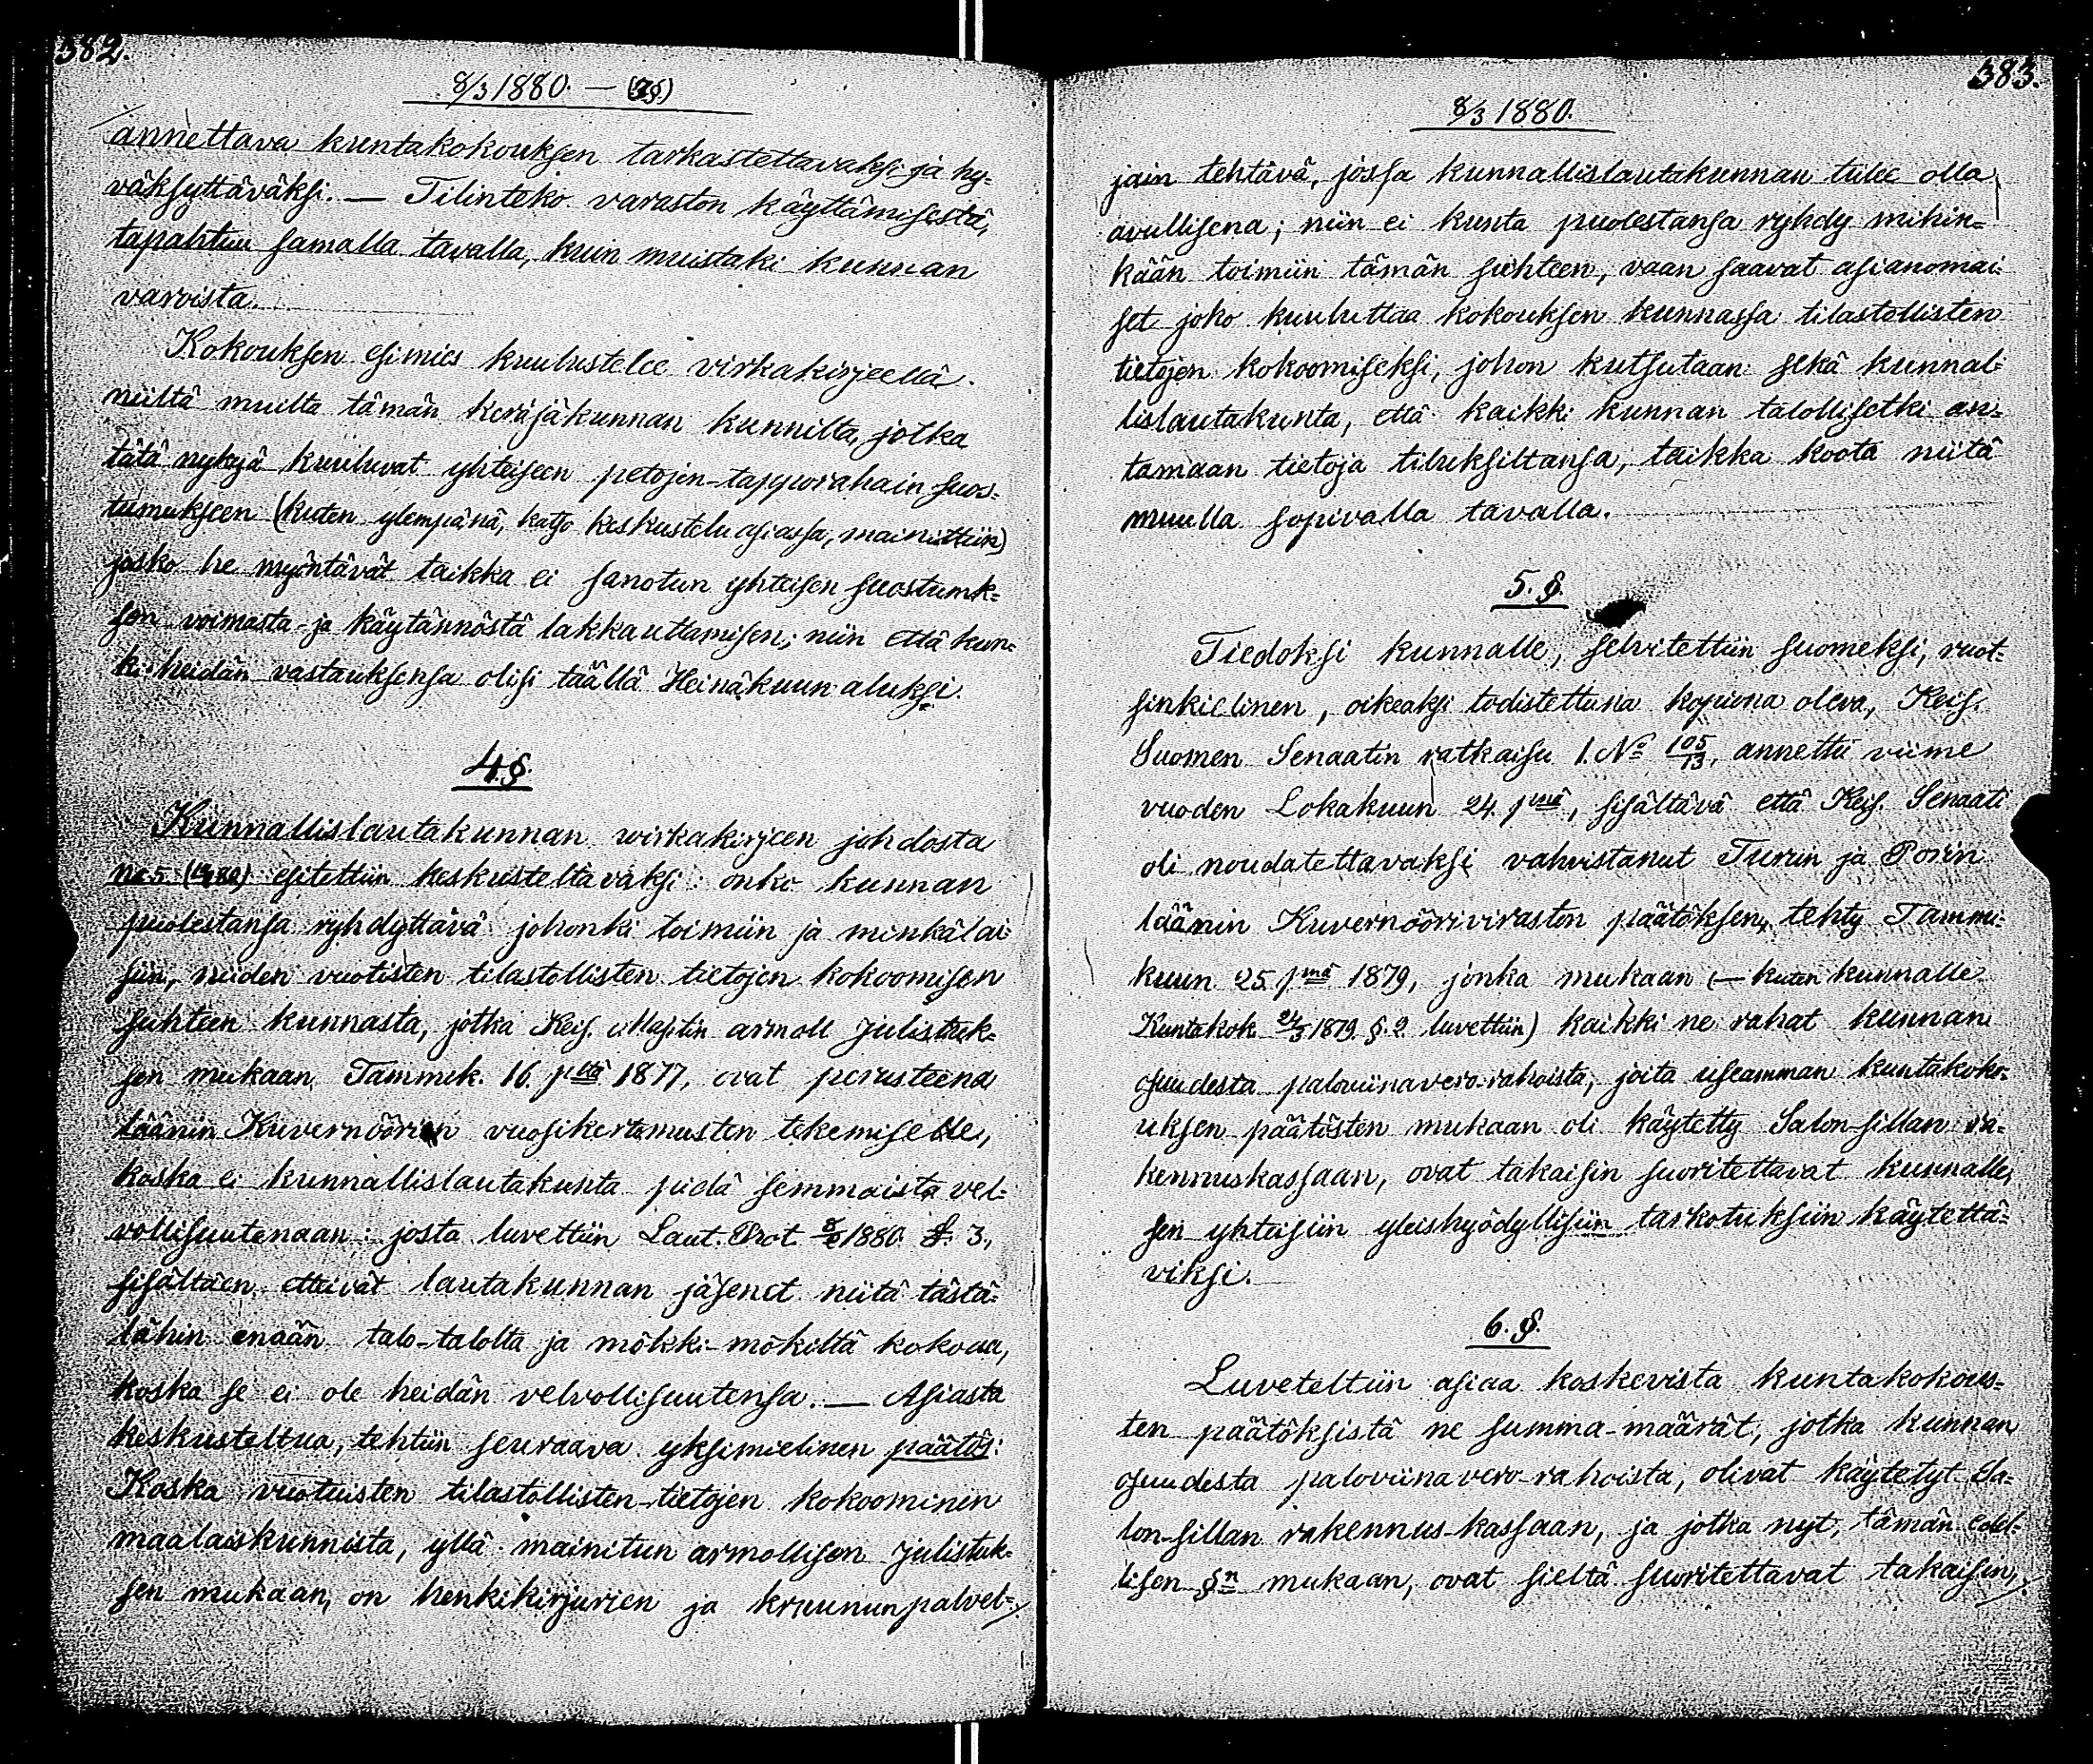 382.
8/3 1880. — (3§)
annettava kuntakokouksen tarkastettavaksi ja hy-
väksyttäväksi. — Tilinteko varaston käyttämisestä,
tapahtuu samalla tavalla, kuin muistaki kunnan
varoista.
Kokouksen esimies kuulustelee virkakirjeellä
niiltä muilta tämän keräjäkunnan kunnilta, jotka
tätä nykyä kuuluvat yhteiseen petojen-tapporahain suos-
tumukseen (kuten ylempänä, katso keskustelu asiassa, mainittiin)
josko he myöntävät taikka ei sanotun yhteisen suostumk-
sen voimasta- ja käytännöstä lakkauttamisen; niin että kun-
ki heidän vastauksensa olisi täällä Heinäkuun aluksi.
4.§.
Kunnallislautakunnan wirkakirjeen johdosta
No 5. esitettiin keskusteltavaksi: onko kunnan
puolestansa ryhdyttävä johonki toimiin ja minkälai-
siin, niiden vuotisten tilastollisten tietojen kokoomisen
suhteen kunnasta, jotka Keis. Majstin armoll Julistuk-
sen mukaan Tammik. 16. p:ltä 1877, ovat perusteena
läänin Kuvernöörien vuosikertomusten tekemiselle,
koska ei kunnallislautakunta pidä semmoista vel-
vollisuutenaan: josta luvettiin Laut. Prot. 8/2 1880. §. 3.,
sisältäen etteivät lautakunnan jäsenet niitä tästä-
lähin enään talo-talolta ja mökki-mökiltä kokoaa,
koska se ei ole heidän velvollisuutensa. — Asiasta
keskusteltua, tehtiin seuraava yksimielinen päätös:
Koska vuotuisten tilastollisten-tietojen kokoominen
maalaiskunnista, yllä mainitun armollisen Julistuk-
sen mukaan, on henkikirjurien ja kruununpalvel-
383.
8/3 1880.
jain tehtävä, jossa kunnallislautakunnan tulee olla
avullisena; niin ei kunta puolestansa ryhdy mihin-
kään toimiin tämän suhteen, vaan saavat asianomai-
set joko kuuluttaa kokouksen kunnassa tilastollisten
tietojen kokoomiseksi, johon kutsutaan sekä kunnal-
lislautakunta, että kaikki kunnan talollisetki an-
tamaan tietoja tiluksiltansa, taikka koota niitä
muulla sopivalla tavalla.
5. §.
Tiedoksi kunnalle, selvitettiin suomeksi, ruot-
sinkielinen, oikeaksi todistettuna kopiona oleva, Keis.
Suomen Senaatin ratkaisu 1. No 105/73, annettu viime
vuoden Lokakuun 24. pnä, sisältävä että Keis. Senaati
oli noudatettavaksi vahvistanut Turun ja Porin
läänin Kuvernööriviraston päätöksen, tehty Tammi-
kuun 25. pnä 1879, jonka mukaan (— kuten kunnalle
Kuntakok. 24/3 1879. §. 2. luvettiin) kaikki ne rahat kunnan
osuudesta paloviinavero-rahoista, joita useamman kuntakoko-
uksen päätösten mukaan oli käytetty Salon-sillan ra-
kennuskassaan, ovat takaisin suoritettavat kunnalle,
sen yhteisiin yleishyödyllisiin tarkotuksiin käytettä-
viksi.
6. §.
Luveteltiin asiaa koskevista kuntakokous-
ten päätöksistä ne summa-määrät, jotka kunnan
osuudesta paloviinavero-rahoista, olivat käytetyt Sa-
lon-sillan rakennus-kassaan, ja jotka nyt, tämän edel-
lisen §n mukaan, ovat sieltä suoritettavat takaisin,